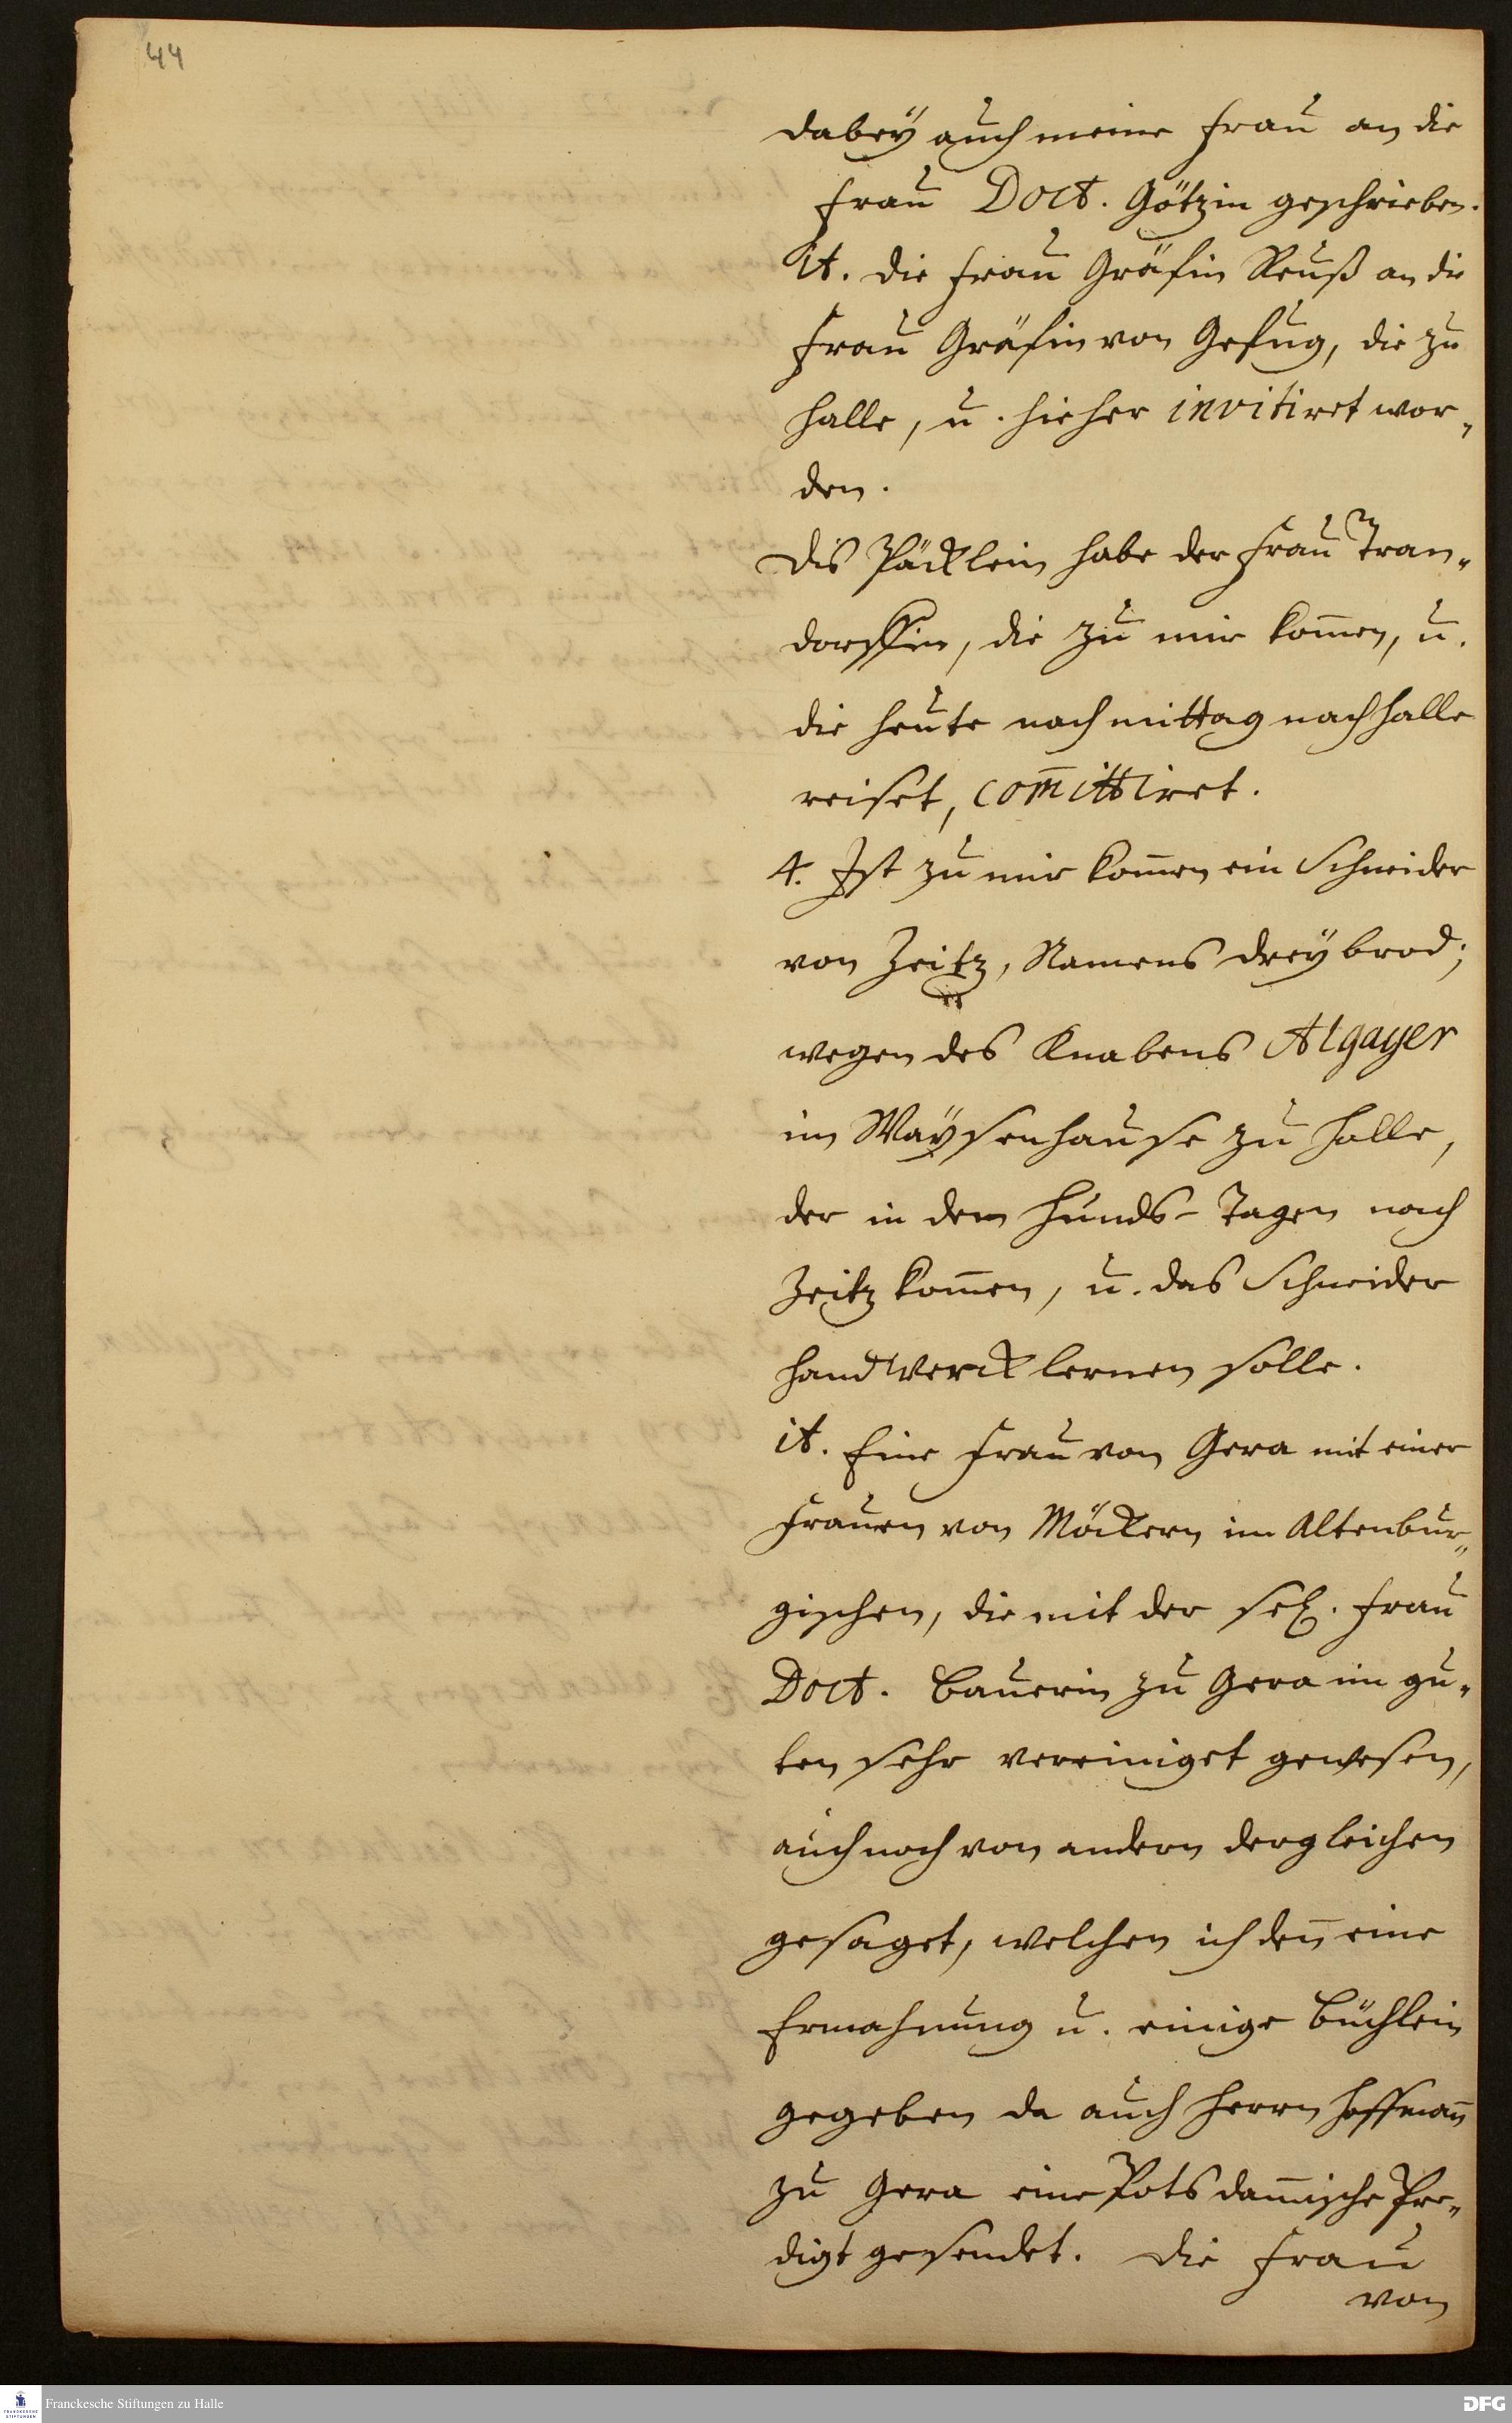 44
dabeÿ auch meine Frau an die
Frau Doct. Götzin geschrieben.
It. die Frau Gräfin Reuß an die
Frau Gräfin von Gefug, die zu
Halle, u. hieher invitiret wor„
den.
Dis Päcklein habe der Frau Tran„
dorffin, die zu mir kom̄en, u.
die heute nach mittag nach Halle
reiset, com̄ittiret.
4. Ist zu mir kom̄en ein Schneider
von Zeitz, Namens Dreÿbrod;
wegen des Knabens Algayer
im Waÿsenhause zu Halle,
der in den Hunds-Tagen nach
Zeitz kom̄en, u. das Schneider
Handwerck lernen solle.
it. Eine Frau von Gera mit einer
Frauen von Möckern im Altenbur„
gischen, die mit der sel. Frau
Doct. Bauerin zu Gera im gu„
ten sehr vereiniget gewesen,
auch noch von andern dergleichen
gesaget, welchen ich den̄ eine
Ermahnung u. einige Büchlein
gegeben da auch Herrn Hoffman̄
zu Gera eine Potsdam̄ische Pre„
digt gesendet. Die Frau
von
Franckesche Stiftungen zu Halle
DFG